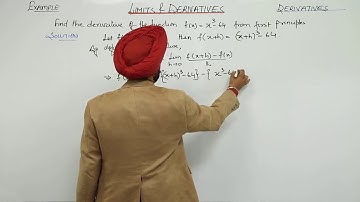 EXAMPLE LIMITS & DERIVATIVES DERIVATIVES
Find the derivative of the function f(x) = x³ - 64 from first principles
SOLUTION then f(x+h) = (x+h)³ - 64
By
Lim h→0 f(x+h) - f(x) / h
⇒ {(x+h)³ - 64} - { x³ - 64